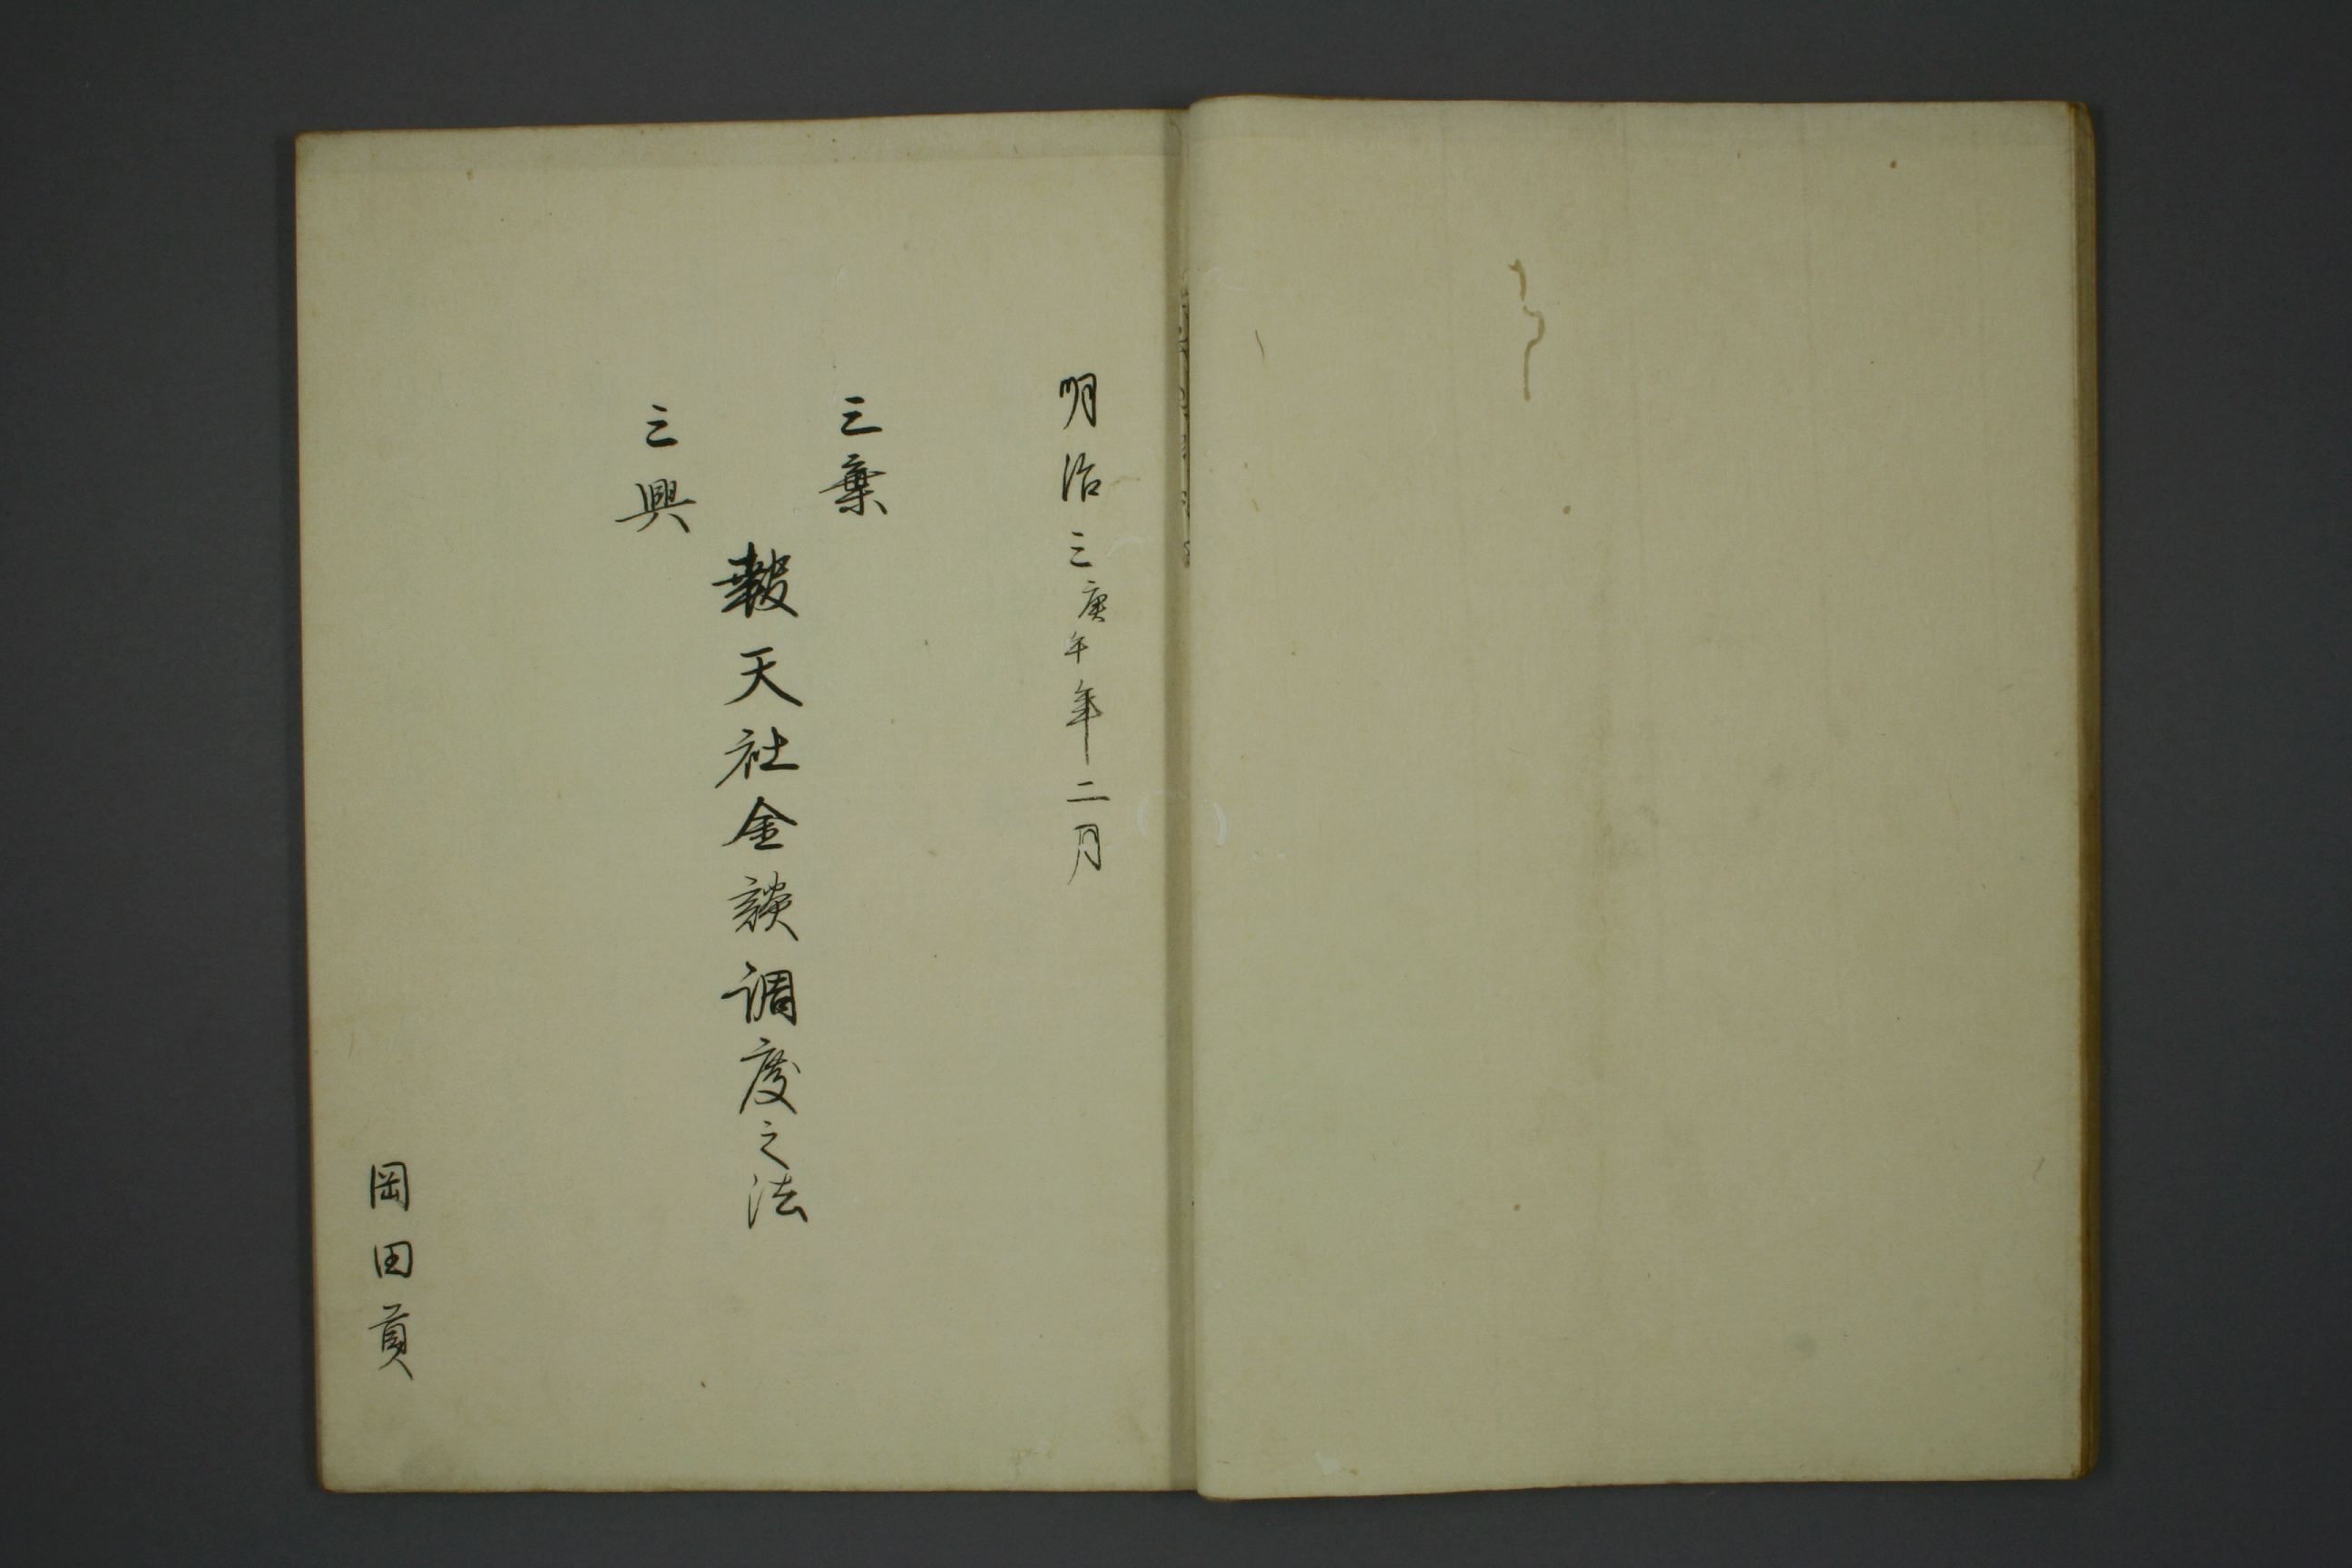 明治三庚午年二月
三棄
三興
報天社金談調度之法
岡田貢